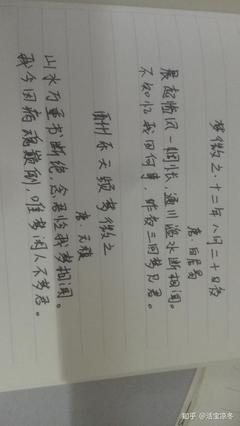 梦微之·十二年八月二十日夜
唐·白居易
晨起临风一惆怅，通川湓水断相闻。
不知忆我因何事，昨夜三回梦见君。
酬乐天频梦微之
唐·元稹
山水万重书断绝，念君怜我梦相闻。
我今因病魂颠倒，唯梦闲人不梦君。
知乎 @活宝凉冬